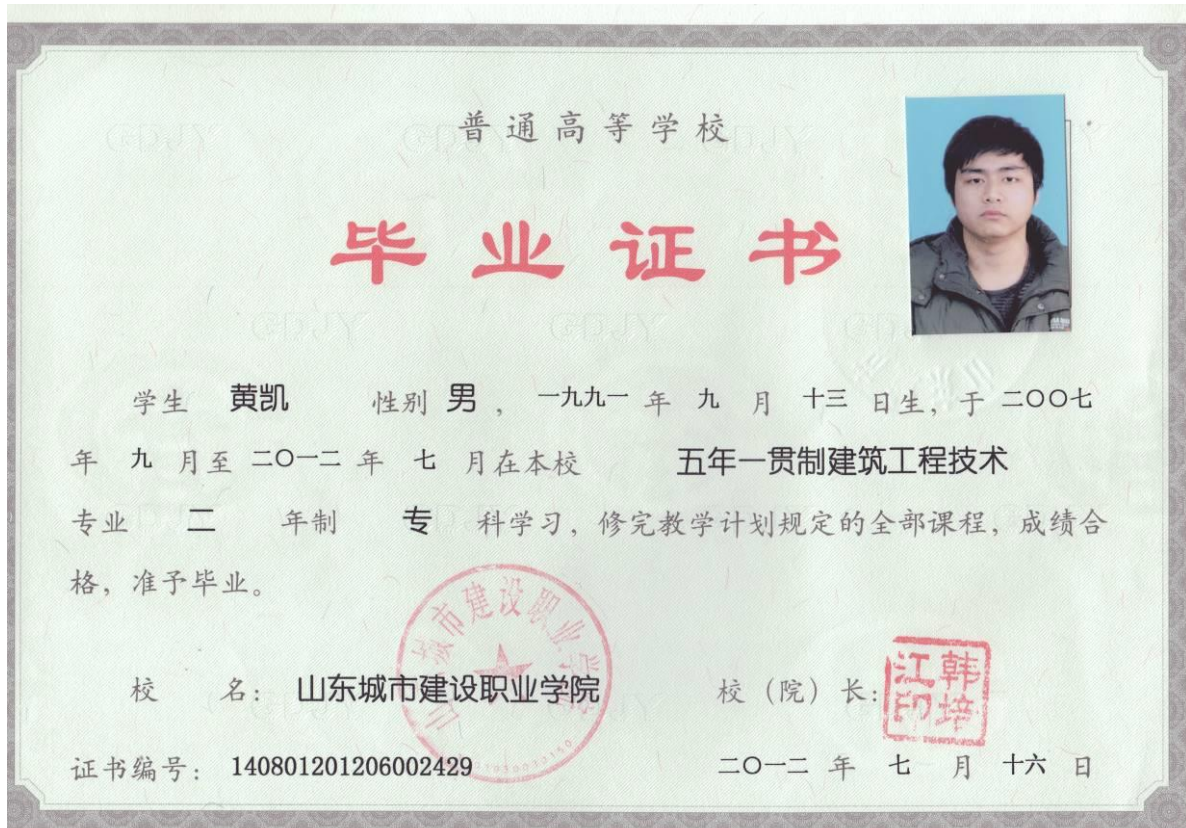 普通高等学校
毕业证书
学生 黄凯 性别 男 ，一九九一 年 九 月 十三 日生，于 二〇〇七
年 九 月至 二〇一二 年 七 月在本校 五年一贯制建筑工程技术
专业 二 年制 专 科学习，修完教学计划规定的全部课程，成绩合
格，准予毕业。
山东城市建设职业学院
校 名： 山东城市建设职业学院 校（院）长：
韩培江印
证书编号： 140801201206002429 二〇一二 年 七 月 十六 日